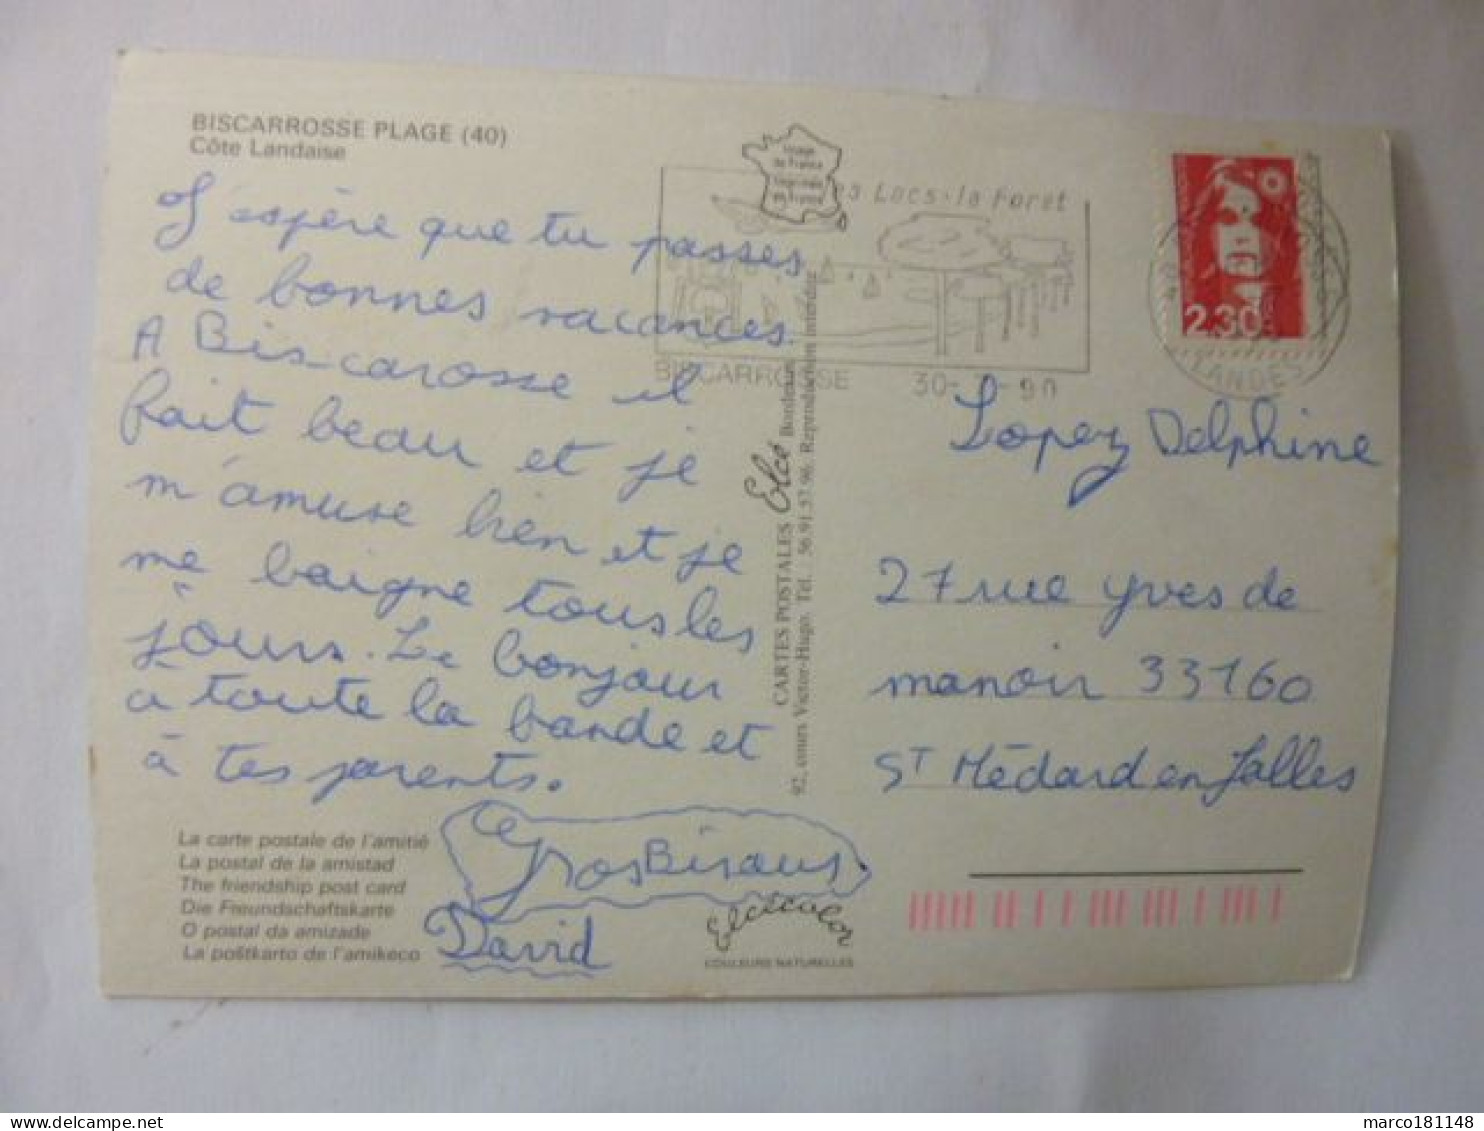 BISCARROSSE PLAGE (40)
Côte Landaise
J'éspère que tu passes
de bonnes vacances.
A Biscarosse il
fait beau et je
m'amuse bien et je
me baigne tous les
jours. Le bonjour
a toute la bande et
à tes parents.
Gros Bisous.
David
La carte postale de l'amitié
La postal de la amistad
The friendship post card
Die Freundschaftskarte
O postal da amizade
La poŝtkarto de l'amikeco
Image
de France
Imprimée
en France
Les Lacs - la Foret
BISCARROSSE
90
LANDES
2,30
CARTES POSTALES Elcé Bordeaux
92, cours Victor-Hugo. Tél. : 56.91.57.96. Reproduction interdite
Elcécolor
COULEURS NATURELLES
Lopez Delphine
27 rue yves de
manoir 33160
ST Médard en Jalles
marco181148